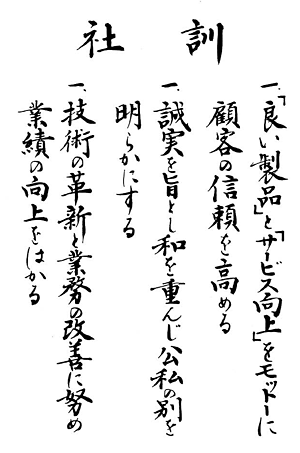 社訓
一、「良い製品」と「サービス向上」をモットーに
顧客の信頼を高める
一、誠実を旨とし和を重んじ公私の別を
明らかにする
一、技術の革新と業務の改善に努め
業績の向上をはかる